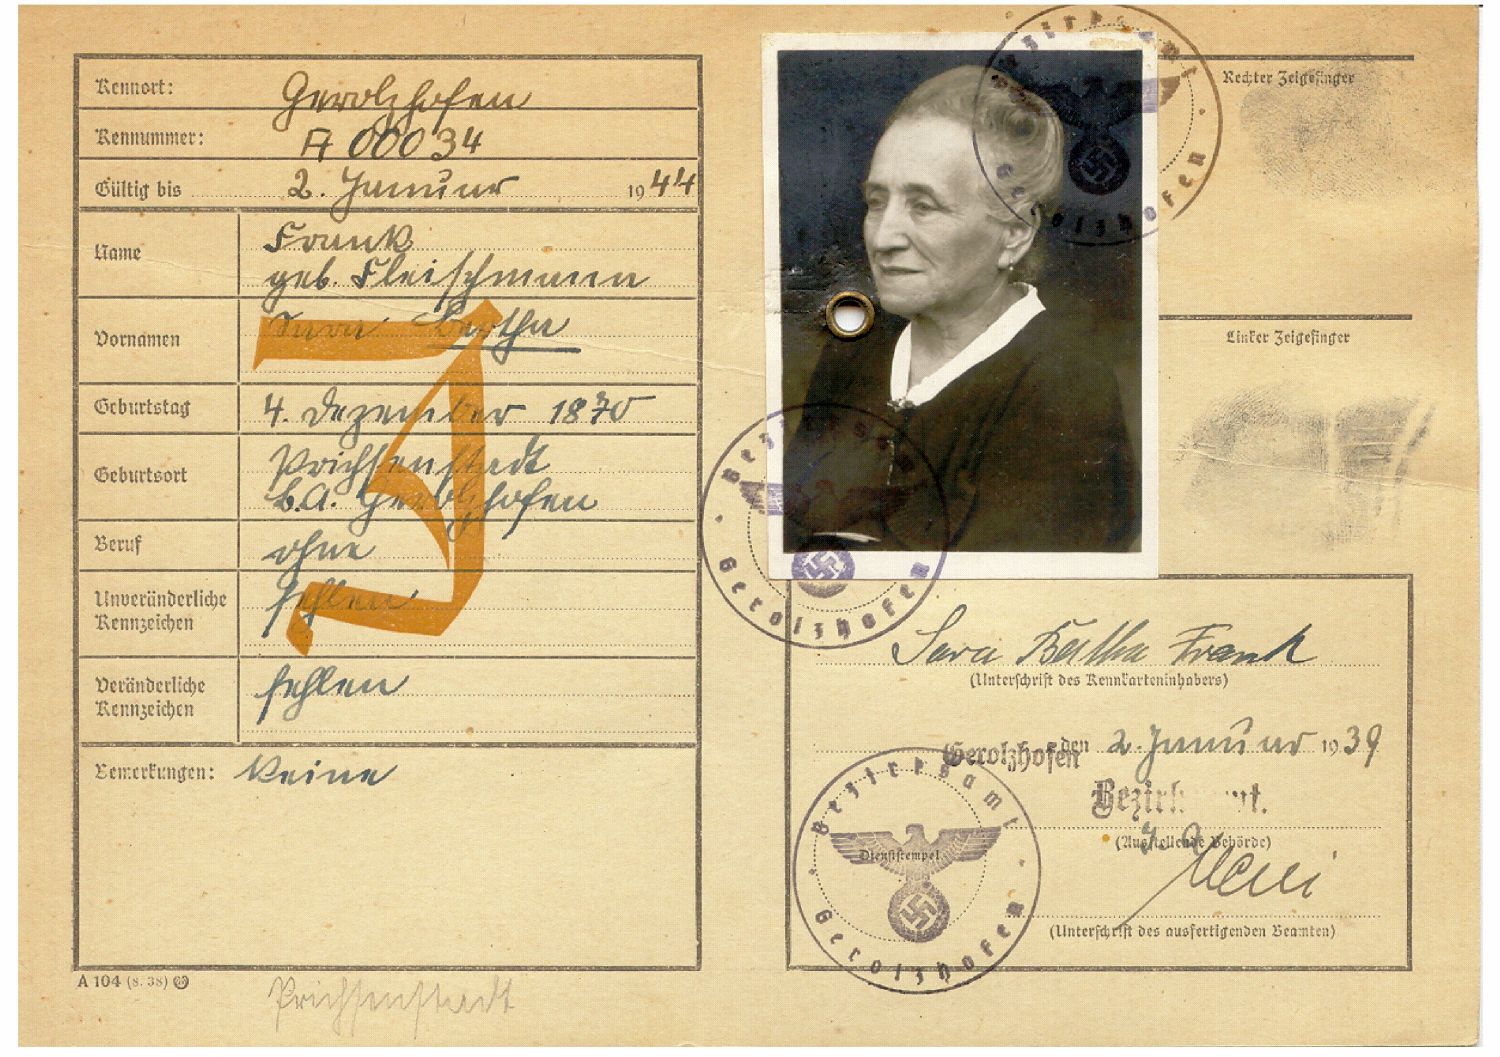 Kennort: Gerolzhofen
Kennummer: A 00034
Gültig bis 2. Januar 1944
Name Frank
geb. Fleischmann
Vornamen Sara Bertha
Geburtstag 4. Dezember 1870
Geburtsort Prichsenstadt
b.A. Gerolzhofen
Beruf ohne
Unveränderliche Kennzeichen fehlen
Veränderliche Kennzeichen fehlen
Bemerkungen: Keine
J
A 104 (8. 38)
Prichsenstadt
Bezirksamt
Gerolzhofen
Bezirksamt
Gerolzhofen
Rechter Zeigefinger
Linker Zeigefinger
Sara Bertha Frank
(Unterschrift des Kennkarteninhabers)
Gerolzhofen den 2. Januar 1939
Bezirksamt.
(Ausstellende Behörde)
(Unterschrift des ausfertigenden Beamten)
Bezirksamt
Dienststempel
Gerolzhofen